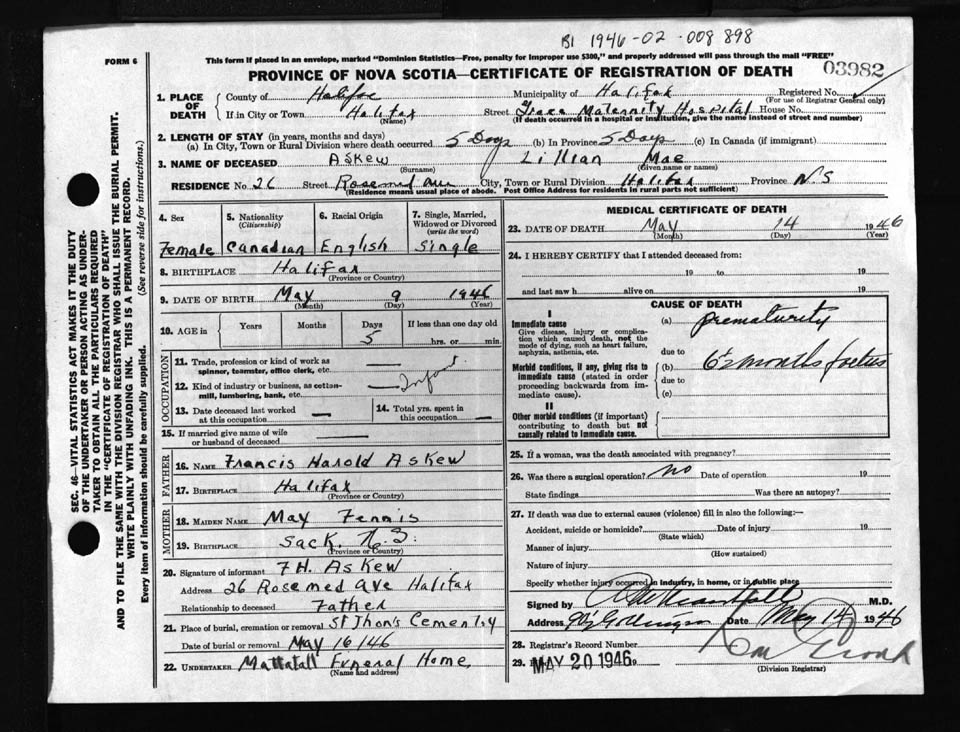 B1 1946-02-008898
FORM 6
This form if placed in an envelope, marked "Dominion Statistics—Free, penalty for improper use $300," and properly addressed will pass through the mail "FREE"
PROVINCE OF NOVA SCOTIA—CERTIFICATE OF REGISTRATION OF DEATH
03982
1. PLACE OF DEATH
County of Halifax Municipality of Halifax Registered No.
(For use of Registrar General only)
If in City or Town Halifax Street Grace Maternity Hospital House No.
(Name) (If death occurred in a hospital or institution, give the name instead of street and number)
2. LENGTH OF STAY (in years, months and days)
(a) In City, Town or Rural Division where death occurred 5 Days (b) In Province 5 Days (c) In Canada (if immigrant)
3. NAME OF DECEASED Askew Lillian Mae
(Surname) (Given name or names)
RESIDENCE No. 26 Street City, Town or Rural Division Halifax Province N.S
(Residence means usual place of abode. Post Office Address for residents in rural parts not sufficient)
4. Sex
Female
5. Nationality
(Citizenship)
Canadian
6. Racial Origin
English
7. Single, Married, Widowed or Divorced
(write the word)
Single
8. BIRTHPLACE Halifax
(Province or Country)
9. DATE OF BIRTH May 9 1946
(Month) (Day) (Year)
10. AGE in Years Months Days If less than one day old
5 hrs. or min.
OCCUPATION
11. Trade, profession or kind of work as
spinner, teamster, office clerk, etc. —
12. Kind of industry or business, as cotton-
mill, lumbering, bank, etc. — Infant
13. Date deceased last worked
at this occupation —
14. Total yrs. spent in
this occupation —
15. If married give name of wife
or husband of deceased —
FATHER
16. NAME Francis Harold Askew
17. BIRTHPLACE Halifax
(Province or Country)
MOTHER
18. MAIDEN NAME May Fennis
19. BIRTHPLACE Sack. N.S.
(Province or Country)
20. Signature of informant F.H. Askew
Address 26 Rosemed Ave Halifax
Relationship to deceased Father
21. Place of burial, cremation or removal St Jhon's
Date of burial or removal May 16/46
22. UNDERTAKER Mattatall Funeral Home
(Name and address)
MEDICAL CERTIFICATE OF DEATH
23. DATE OF DEATH May 14 1946
(Month) (Day) (Year)
24. I HEREBY CERTIFY that I attended deceased from:
19 to 19
and last saw h alive on 19
CAUSE OF DEATH
I
Immediate cause
Give disease, injury or complica-
tion which caused death, not the
mode of dying, such as heart failure,
asphyxia, asthenia, etc.
(a) Prematurity
due to
Morbid conditions, if any, giving rise to
immediate cause (stated in order
proceeding backwards from im-
mediate cause).
(b) 6½ months foetus
due to
(c)
II
Other morbid conditions (if important)
contributing to death but not
causally related to immediate cause.
25. If a woman, was the death associated with pregnancy?
26. Was there a surgical operation? no Date of operation 19
State findings Was there an autopsy?
27. If death was due to external causes (violence) fill in also the following:—
Accident, suicide or homicide? Date of injury 19
(State which)
Manner of injury
(How sustained)
Nature of injury
Specify whether injury occurred in industry, in home, or in public place
Signed by M.D.
Address Date May 14 1946
28. Registrar's Record Number
29. MAY 20 1946
(Division Registrar)
SEC. 46—VITAL STATISTICS ACT MAKES IT THE DUTY
OF THE UNDERTAKER OR PERSON ACTING AS UNDER-
TAKER TO OBTAIN ALL THE PARTICULARS REQUIRED
IN THE "CERTIFICATE OF REGISTRATION OF DEATH"
AND TO FILE THE SAME WITH THE DIVISION REGISTRAR WHO SHALL ISSUE THE BURIAL PERMIT.
WRITE PLAINLY WITH UNFADING INK. THIS IS A PERMANENT RECORD.
Every item of information should be carefully supplied. (See reverse side for instructions.)